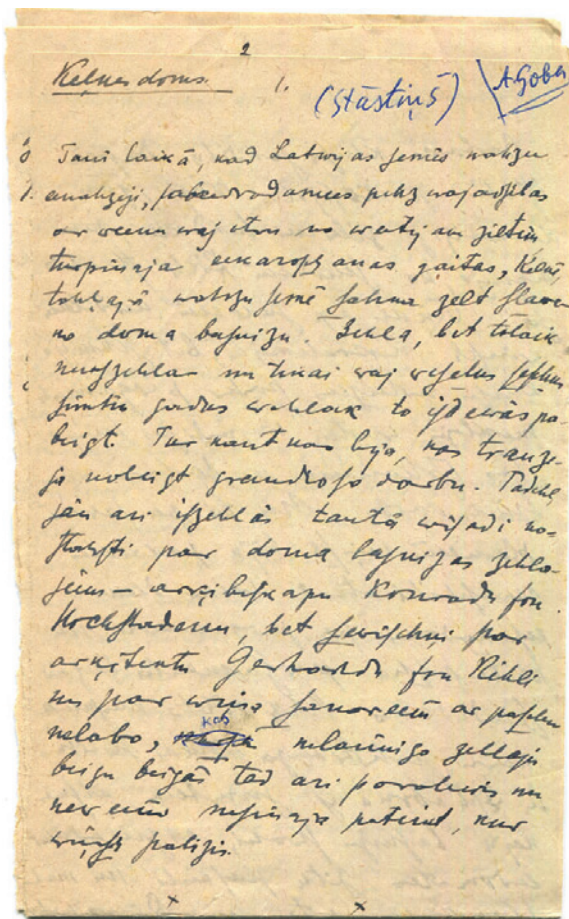 2
Kelnes doms. 1. (Stāstiņš) A. Goba
Tani laikā, kad Latwijas semēs wahzu
ar weenu waj otru no
turpinaja eekaroschanas gaitas, Kelnē,
tahlajā wahzu semē sahka zelt slawe
no doma basnizu. Zehla, bet tolaik
neuszehla un tikai waj weselus septiņ
simtu gadus wehlak to isdewās pa-
beigt. Tur kaut kas bija, kas trauze-
ja nobeigt grandioso darbu. Tadehļ
jau ari iszehlās tautā wisadi no-
stahsti par doma basnizas zehlo-
jeem – arķibiskapu Konradu fon
Hochstadenu, bet sewischķi par
arķitektu Gerhardu fon Rihli
un par wiņa sakareem ar paschu
nelabo, kas nelaimigo zehleju
beigu beigās tad ari parahwis un
neweens nesinaja pateikt, kur
wiņsch palizis.
x x